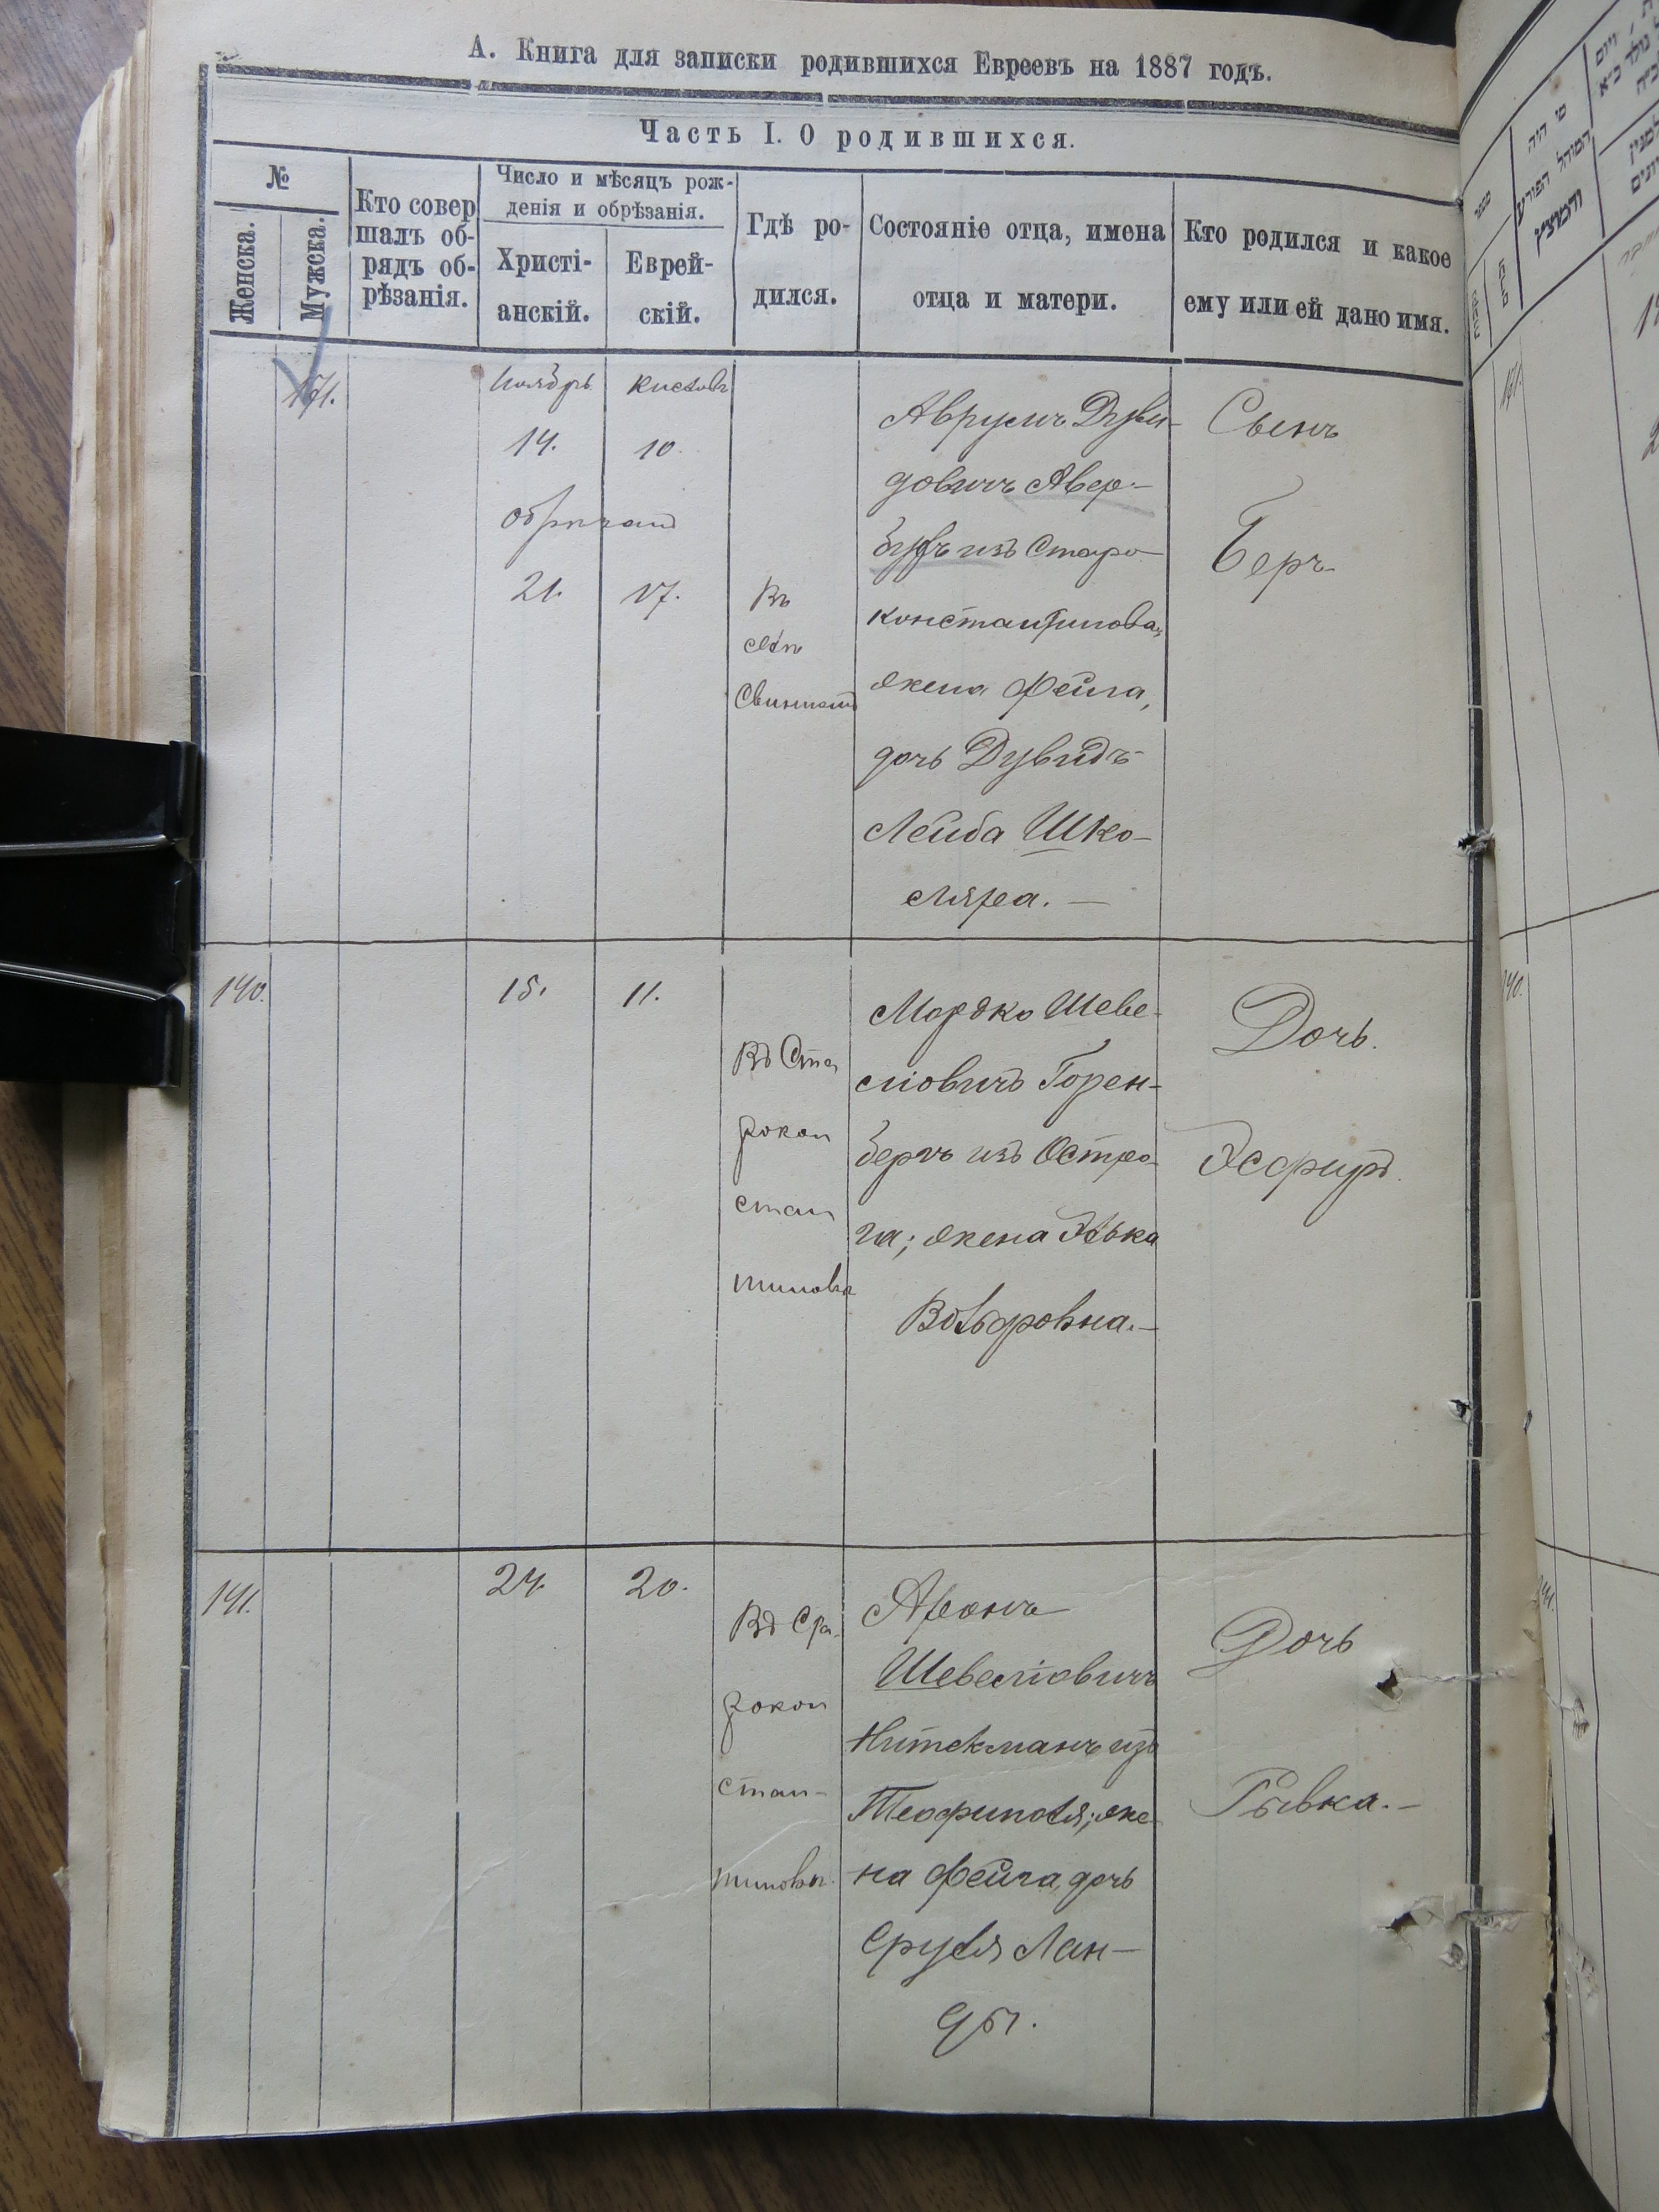 А. Книга для записки родившихся Евреевъ на 1887 годъ.
Часть I. О родившихся.
№
Женска.
Мужска.
Кто совер
шалъ об-
рядъ об-
рѣзанія.
Число и мѣсяцъ рож-
денія и обрѣзанія.
Христі-
анскій.
Еврей-
скій.
Гдѣ ро-
дился.
Состояніе отца, имена
отца и матери.
Кто родился и какое
ему или ей дано имя.
171.
Ноябрь
14.
21.
10.
17.
Въ
селѣ
Аврумъ Дуви-
довичъ Авер-
бухъ изъ Старо-
константинова,
жена Фейга,
дочь Дувидъ
Лейба Шко-
ляра. —
Сынъ
Беръ
140.
15.
11.
Въ Ста
рокон
стан
тиновѣ
Мордко Шеве-
ліовичъ Горен-
бергъ изъ Остро-
га; жена Элька
Вольфовна. —
Дочь.
Эсфирь.
141.
24.
20.
Въ Ста
рокон
стан-
тиновѣ
Аронъ
Шевеліовичъ
Нитекманъ изъ
Теофиполя; же-
на Фейга, дочь
Сруля Лан-
ды.
Дочь
Рывка. —